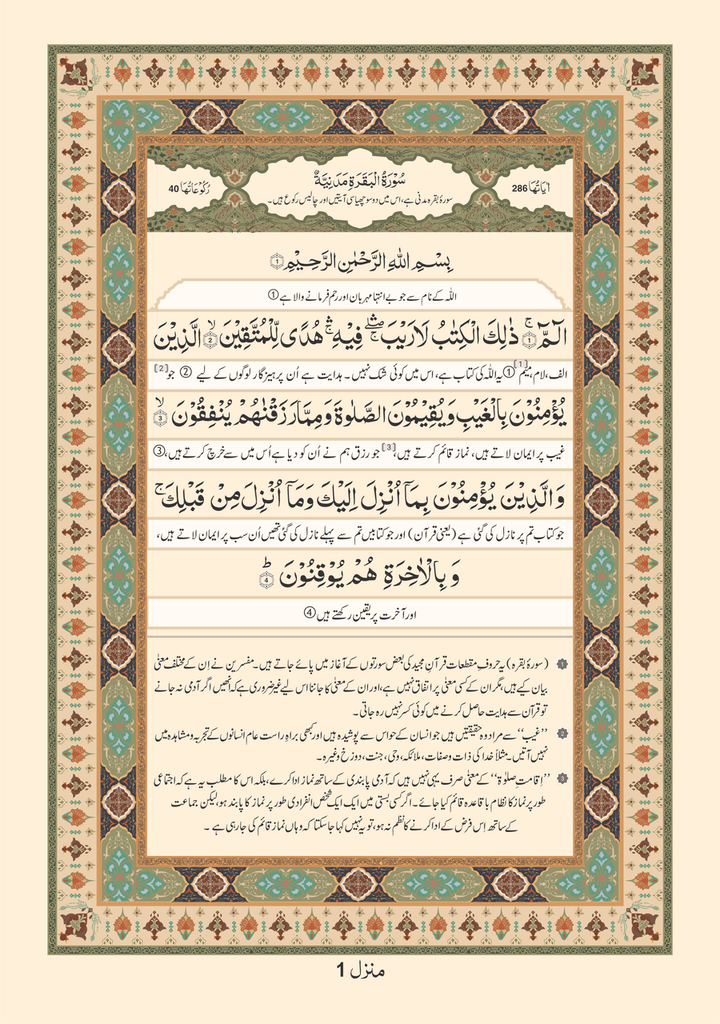 اٰیَاتُهَا 286
سُوْرَةُ الْبَقَرَةِ مَدَنِیَّةٌ
رُكُوْعَاتُهَا 40
سورۂ بقرہ مدنی ہے، اس میں دو سو چھیاسی آیتیں اور چالیس رکوع ہیں۔
بِسْمِ اللّٰهِ الرَّحْمٰنِ الرَّحِیْمِ ۝۱
اللہ کے نام سے جو بے انتہا مہربان اور رحم فرمانے والا ہے ①
الٓمّٓ ۚ۝۱ ذٰلِكَ الْكِتٰبُ لَا رَیْبَ ۛۖۚ فِیْهِ ۛۚ هُدًی لِّلْمُتَّقِیْنَ ۙ۝۲ الَّذِیْنَ
الف، لام، میٖم [1] ① یہ اللہ کی کتاب ہے، اس میں کوئی شک نہیں۔ ہدایت ہے اُن پرہیزگار لوگوں کے لیے ② جو [2]
یُؤْمِنُوْنَ بِالْغَیْبِ وَیُقِیْمُوْنَ الصَّلٰوةَ وَمِمَّا رَزَقْنٰهُمْ یُنْفِقُوْنَ ۙ۝۳
غیب پر ایمان لاتے ہیں، نماز قائم کرتے ہیں، [3] جو رزق ہم نے اُن کو دیا ہے اُس میں سے خرچ کرتے ہیں، ③
وَالَّذِیْنَ یُؤْمِنُوْنَ بِمَاۤ اُنْزِلَ اِلَیْكَ وَمَاۤ اُنْزِلَ مِنْ قَبْلِكَ ۚ
جو کتاب تم پر نازل کی گئی ہے (یعنی قرآن) اور جو کتابیں تم سے پہلے نازل کی گئی تھیں اُن سب پر ایمان لاتے ہیں،
وَ بِالْاٰخِرَةِ هُمْ یُوْقِنُوْنَ ؕ۝۴
اور آخرت پر یقین رکھتے ہیں ④
۱ (سورۂ بقرہ) یہ حروفِ مقطعات قرآنِ مجید کی بعض سورتوں کے آغاز میں پائے جاتے ہیں۔ مفسرین نے اِن کے مختلف معنی
بیان کیے ہیں، مگر ان کے کسی معنی پر اتفاق نہیں ہے، اور ان کے معنی کا جاننا اس لیے غیر ضروری ہے کہ انھیں اگر آدمی نہ جانے
تو قرآن سے ہدایت حاصل کرنے میں کوئی کسر نہیں رہ جاتی۔
۲ ’’غیب‘‘ سے مراد وہ حقیقتیں ہیں جو انسان کے حواس سے پوشیدہ ہیں اور کبھی براہِ راست عام انسانوں کے تجربہ و مشاہدہ میں
نہیں آتیں۔ مثلاً خدا کی ذات و صفات، ملائکہ، وحی، جنت، دوزخ وغیرہ۔
۳ ’’اِقامتِ صلوٰۃ‘‘ کے معنی صرف یہی نہیں ہیں کہ آدمی پابندی کے ساتھ نماز ادا کرے، بلکہ اس کا مطلب یہ ہے کہ اجتماعی
طور پر نماز کا نظام باقاعدہ قائم کیا جائے۔ اگر کسی بستی میں ایک ایک شخص انفرادی طور پر نماز کا پابند ہو، لیکن جماعت
کے ساتھ اِس فرض کے ادا کرنے کا نظم نہ ہو، تو یہ نہیں کہا جا سکتا کہ وہاں نماز قائم کی جا رہی ہے ۔
منزل 1